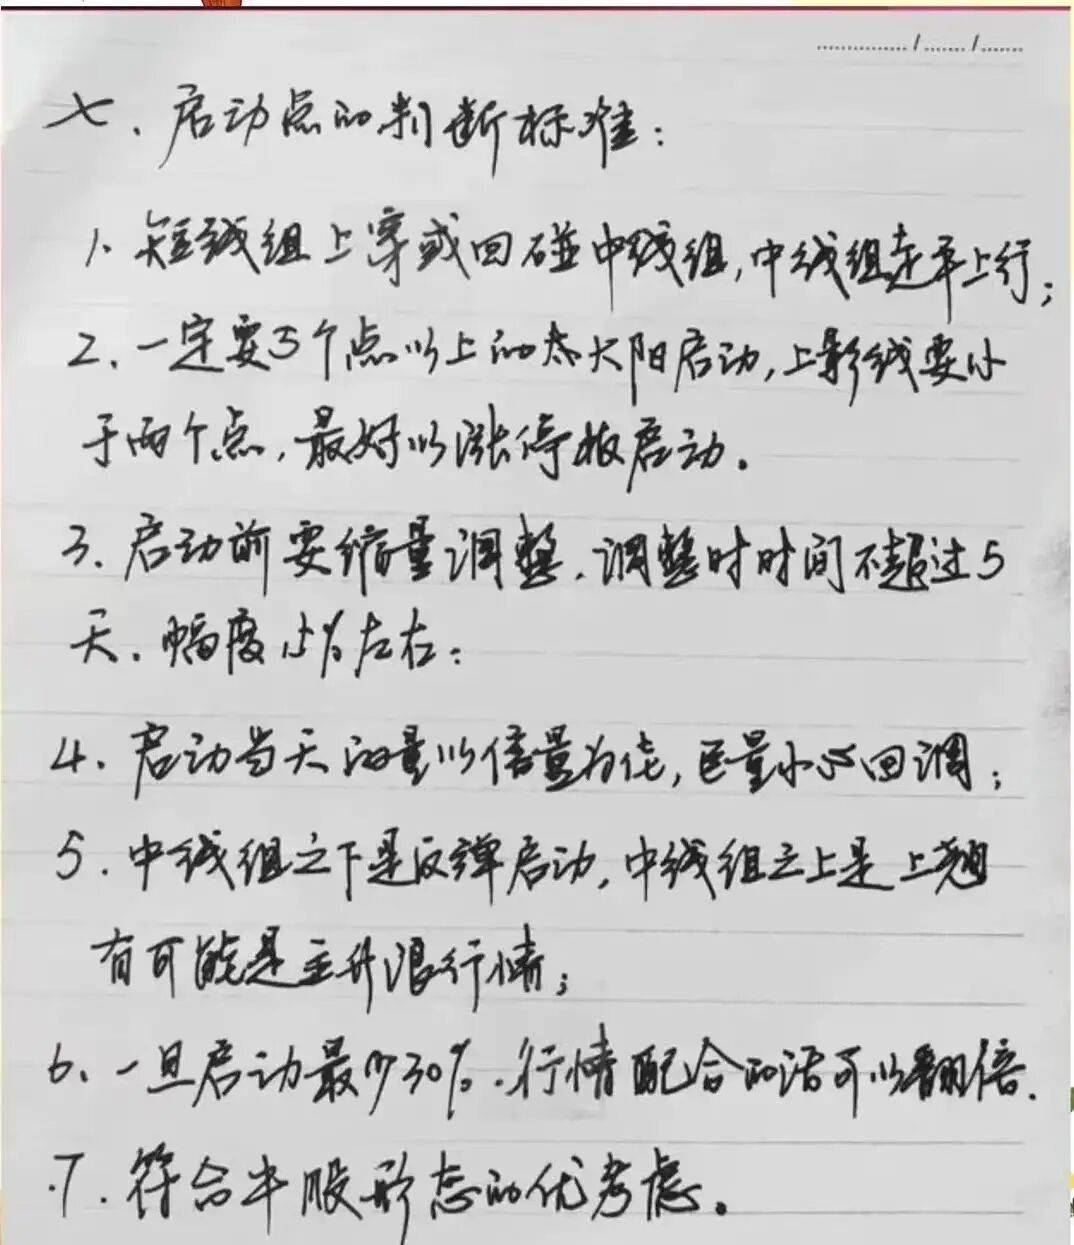 七、启动点的判断标准：
1、短线组上穿或回碰中线组,中线组走平上行；
2、一定要5个点以上的大阳启动,上影线要小
于两个点,最好以涨停板启动。
3、启动前要缩量调整、调整时时间不超过5
天、幅度15%左右；
4、启动当天的量以倍量为佳,巨量小心回调；
5、中线组之下是反弹启动,中线组之上是上翘
有可能是主升浪行情；
6、一旦启动最少30%、行情配合的话可以翻倍.
7、符合牛股形态的优考虑。